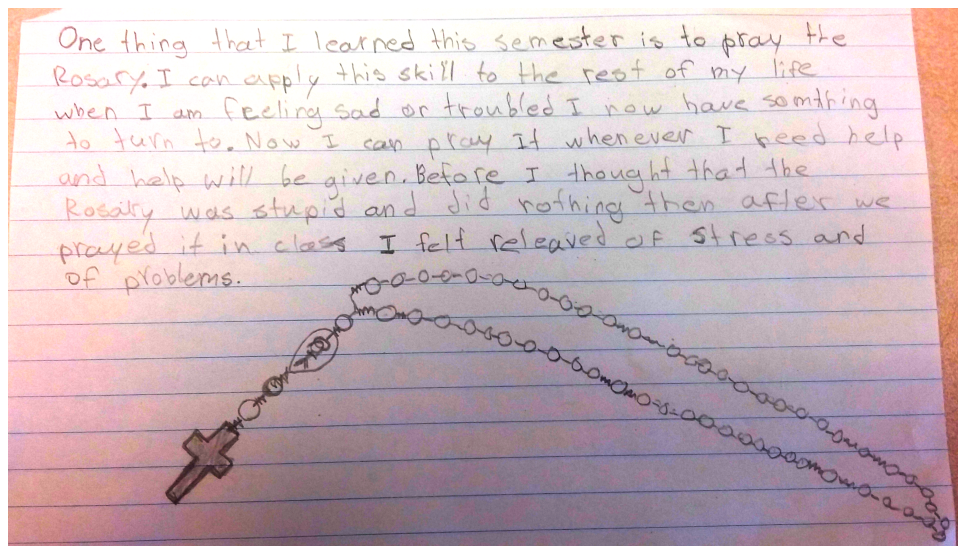 One thing that I learned this semester is to pray the
Rosary. I can apply this skill to the rest of my life
when I am feeling sad or troubled I now have somthing
to turn to. Now I can pray It whenever I need help
and help will be given. Before I thought that the
Rosary was stupid and did nothing then after we
prayed it in class I felt releaved of stress and
of problems.